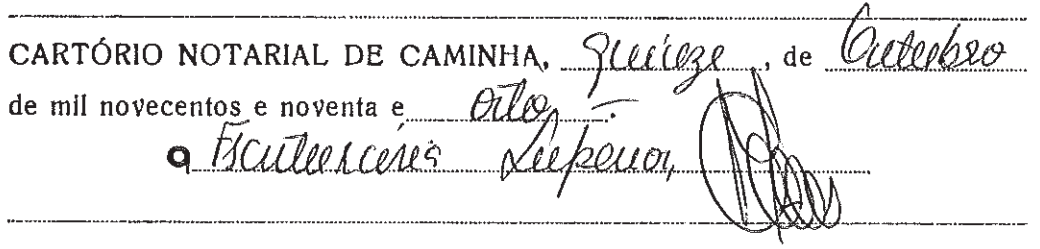 CARTÓRIO NOTARIAL DE CAMINHA, quinze, de Outubro
de mil novecentos e noventa e oito.
a Escriturária Superior,